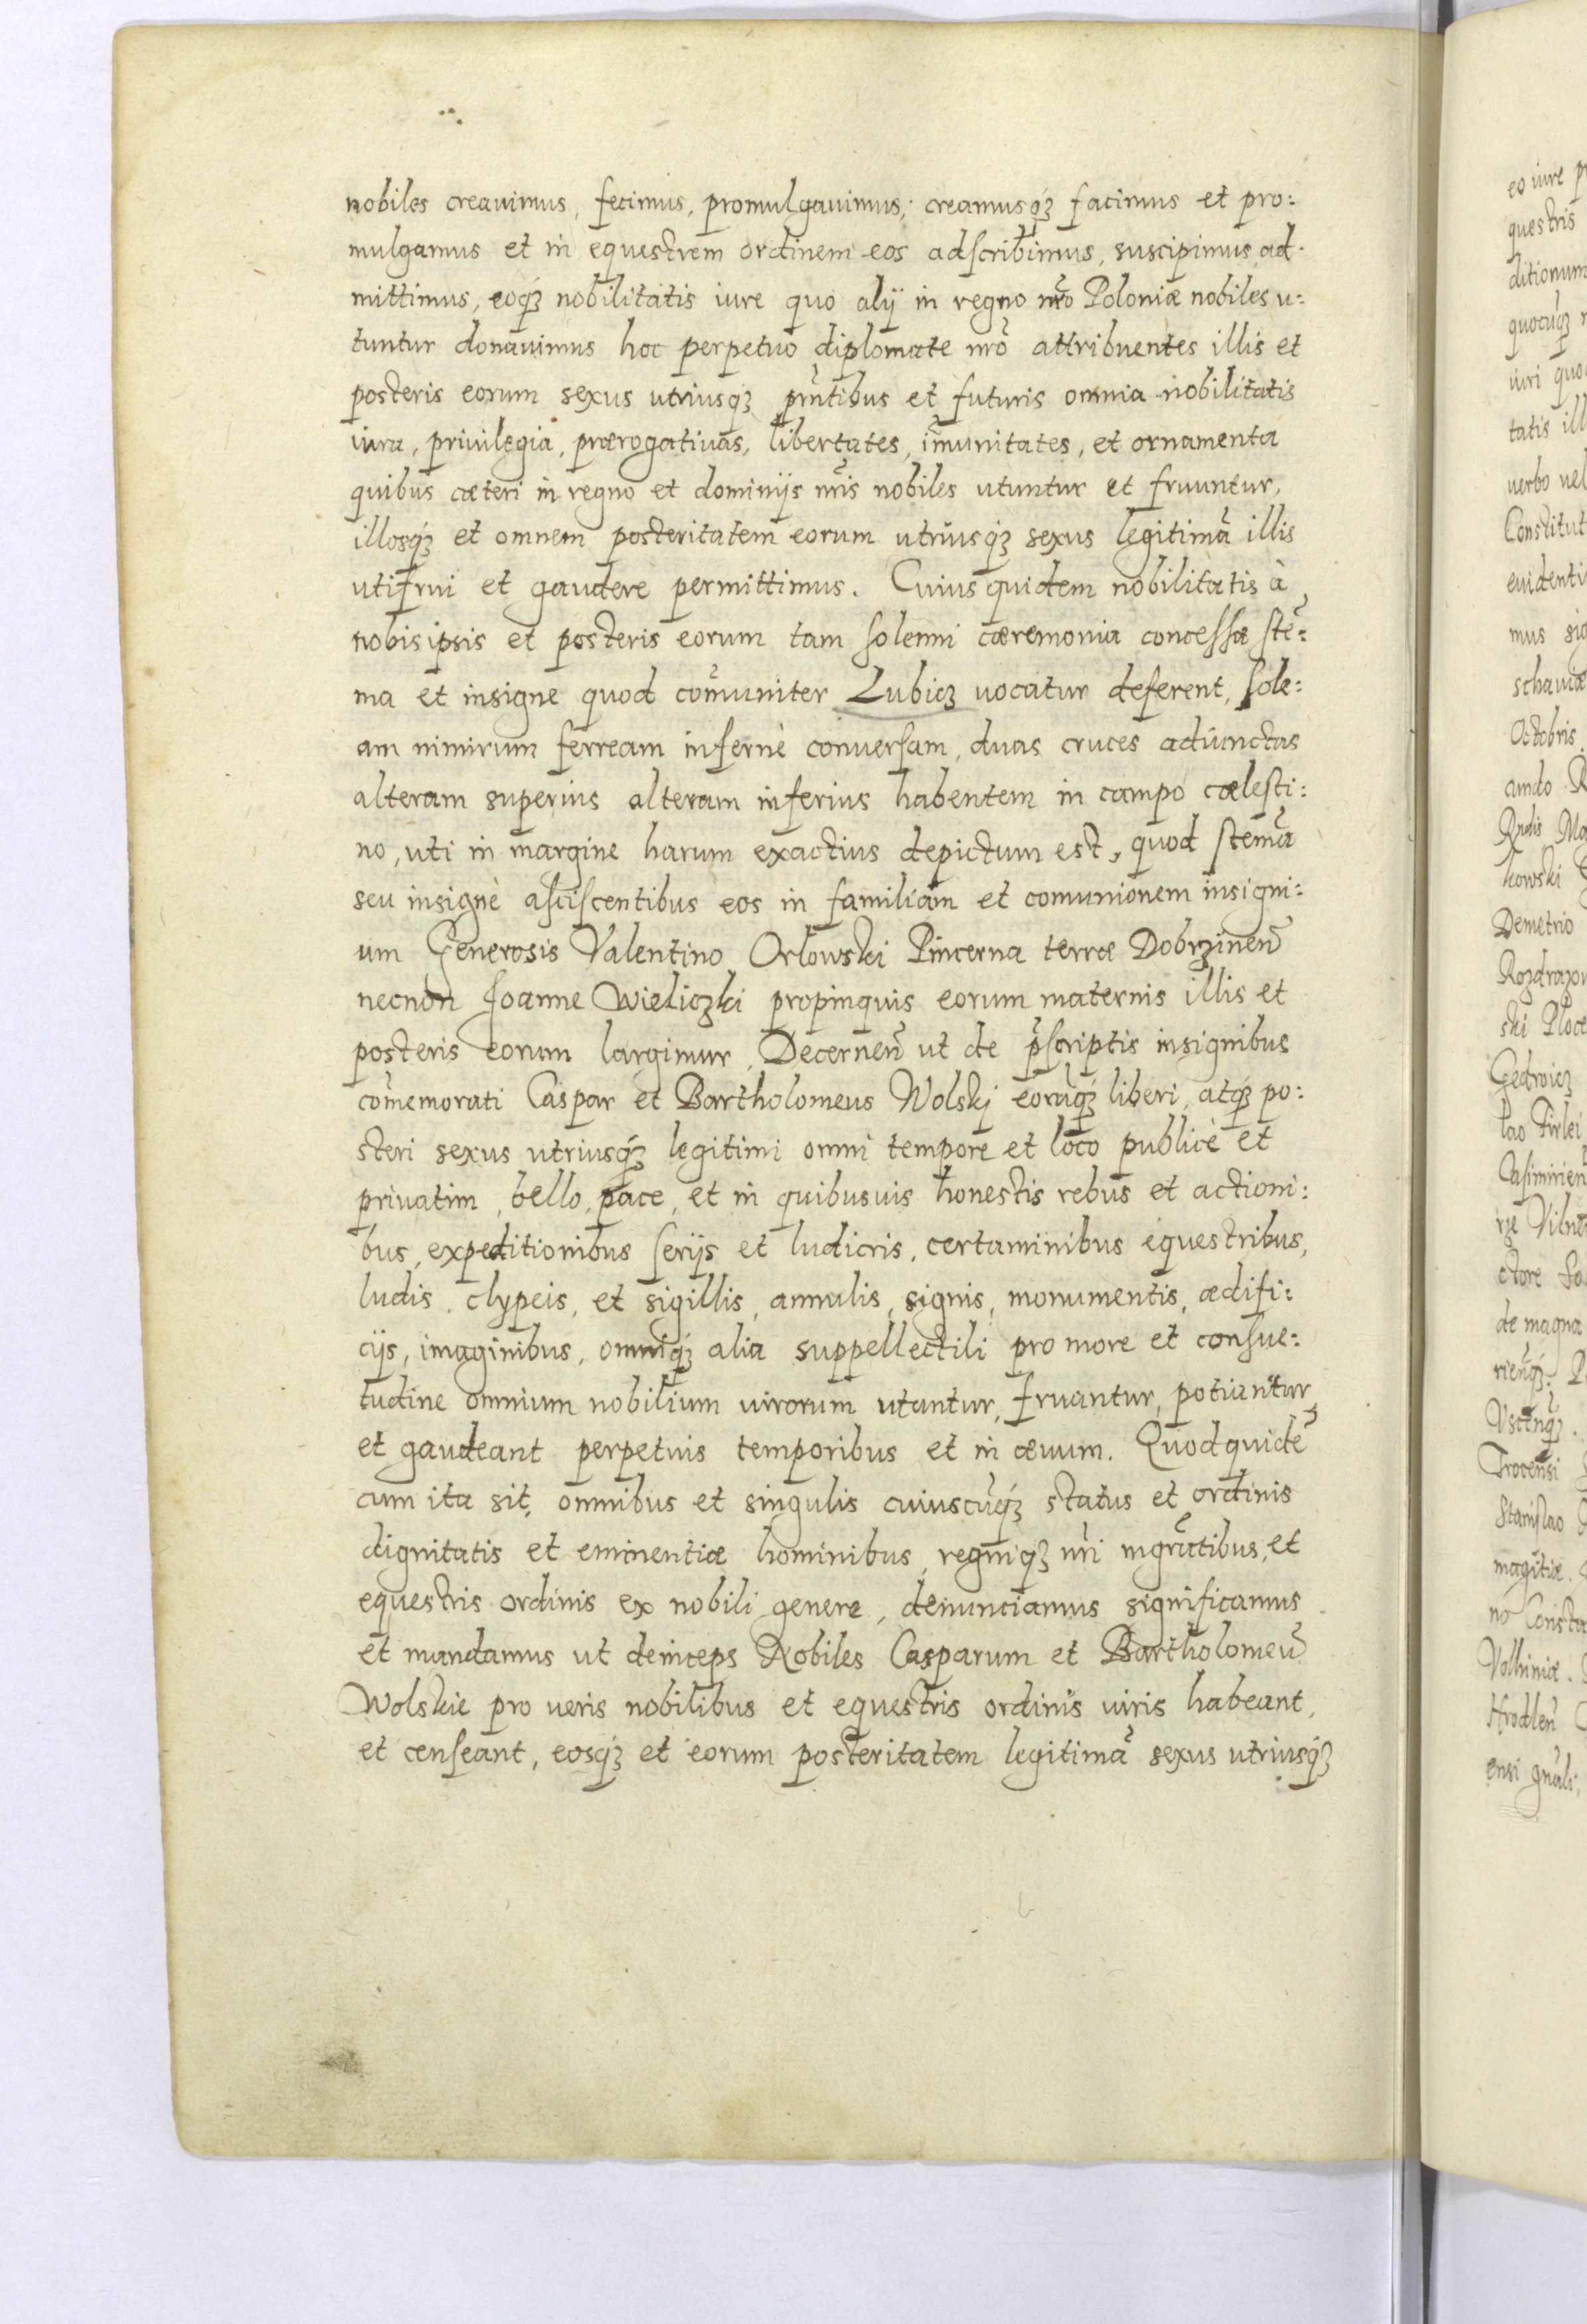 nobiles creauimus, fecimus, promulgauimus, creamusq́ꝫ facimus et pro:
mulgamus et in equestrem ordinem eos adſcribimus, suscipimus, ad:
mittimus, eoq́ꝫ nobilitatis iure quo alÿ in regno nr̃o Poloniæ nobiles u:
tuntur donauimus hoc perpetuo diplomate nr̃o attribuentes illis et
posteris eorum sexus utriusq́ꝫ pñtibus et futuris omnia nobilitatis
iura, priuilegia, prærogatiuas, libertates, im̃unitates, et ornamenta
quibus cæteri in regno et dominijs nr̃is nobiles utuntur et fruuntur,
illosq́ꝫ et omnem posteritatem eorum utriusq́ꝫ sexus legitimã illis
uti frui et gaudere permittimus. Cuius quidem nobilitatis à
nobis ipsis et posteris eorum tam ſolenni cæremonia conceſſæ stẽ:
ma et insigne quod com̃uniter Lubicz uocatur deferent, ſole:
am nimirum ferream infernè conuerſam, duas cruces adiunctas
alteram superius alteram inferius habentem in campo cæleſti:
no, uti in margine harum exactius depictum est, quod ſtem̃a
seu insigne aſciſcentibus eos in familiam et comunionem insigni:
um Generosis Valentino Orłowski Pincerna terræ Dobrzineñ
necnon Joanne Wieliczki propinquis eorum maternis illis et
posteris eorum largimur, Decerneñ ut de p̃ſcriptis insignibus
com̃emorati Caspar et Bartholomeus Wolskj eorũq́ꝫ liberi, atq́ꝫ po:
steri sexus utriusq́ꝫ legitimi omni tempore et loco publicè et
priuatim, bello, pace, et in quibusuis honestis rebus et actioni:
bus, expeditionibus ſerijs et ludicris, certaminibus equestribus,
ludis, clypeis, et sigillis, annulis, signis, monumentis, ædifi:
cijs, imaginibus, omniq́ꝫ alia suppellectili pro more et conſue:
tudine omnium nobilium uirorum utantur, fruantur, potiantur,
et gaudeant perpetuis temporibus et in æuum. Quod quidẽ
cum ita sit, omnibus et singulis cuiuscũq́ꝫ status et ordinis
dignitatis et eminentiæ hominibus, regniq́ꝫ nr̃i mgrãtibus, et
equestris ordinis ex nobili genere, denunciamus significamus
et mandamus ut deinceps Nobiles Casparum et Bartholomeũ
Wolskie pro ueris nobilibus et equestris ordinis uiris habeant,
et cenſeant, eosq́ꝫ et eorum posteritatem legitimã sexus utriusq́ꝫ